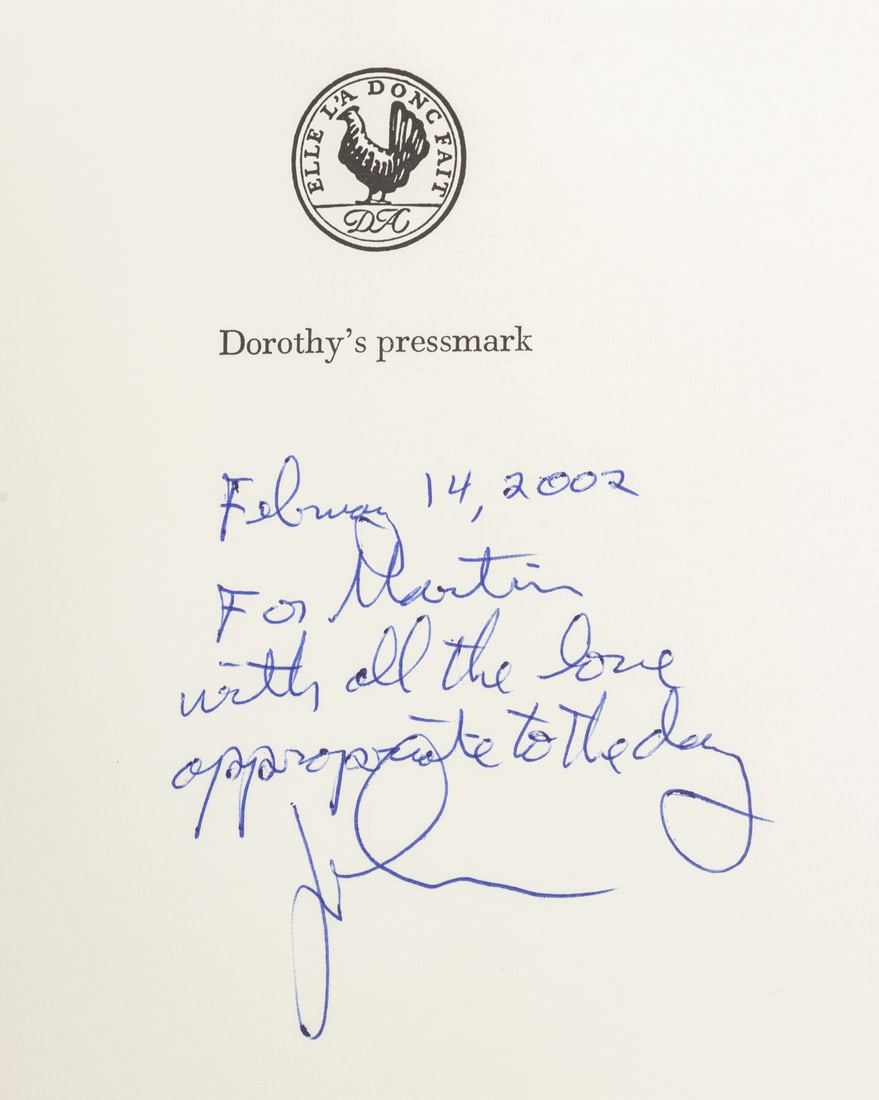 ELLE L'A DONC FAIT
DA
Dorothy's pressmark
February 14, 2002
For Martin
with all the love
appropriate to the day
John